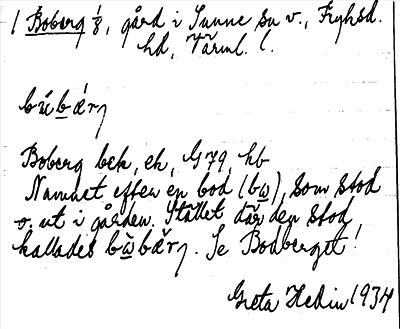 1 Boberg 1/8, gård i Sunne sn v., Fryksd.
hd, Värml. l.
búbærj
Boberg bek, ek, G79, hb
Namnet efter en bod (bω), som stod
o. ut i gården. Stället där den stod
kallades bὼbæ̆rj. Se Bodberget!
Greta Hedin 1934